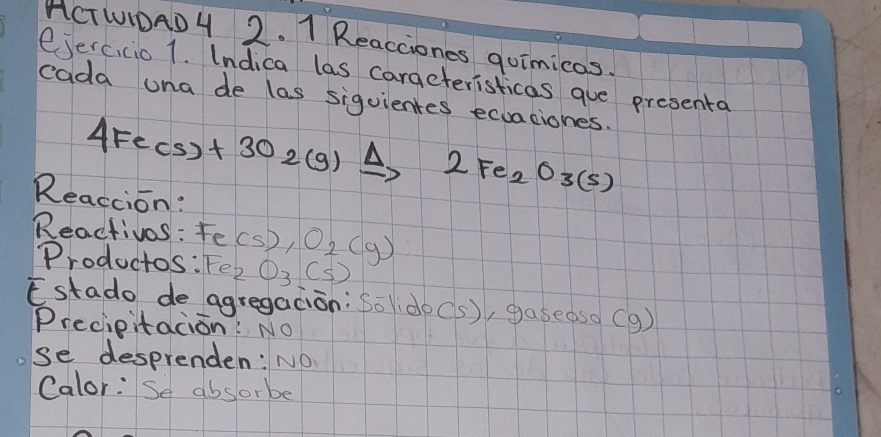 ACTWIDAD 4 2.1 Reacciones químicas.
ejercicio 1. Indica las características que presenta
cada una de las siguientes ecuaciones.
4Fe(s) + 3O2(g) Δ→ 2Fe2O3(s)
Reacción:
Reactivos: Fe(s), O2(g)
Productos: Fe2O3(s)
Estado de agregación: Sólido(s), gaseoso(g)
Precipitación: No
se desprenden: No
Calor: Se absorbe